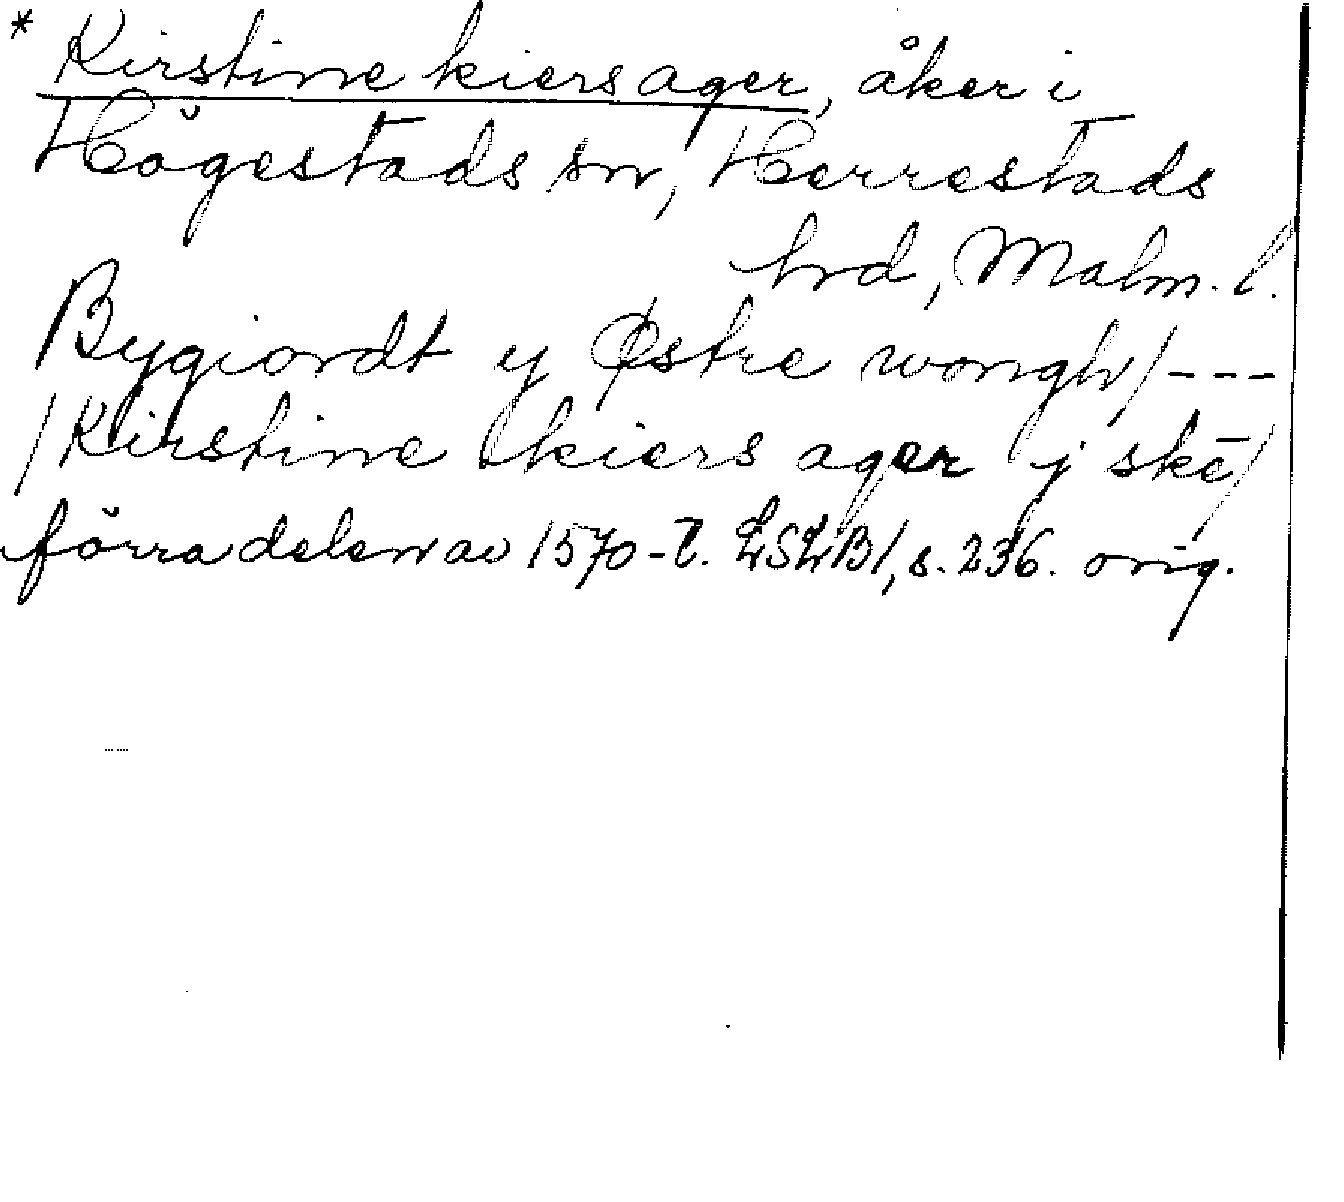 * Kirstine kiers ager, åker i
Högestads sn, Herrestads
hrd, Malm. l.
Bygiordt y Østre wongh/ ---
/Kirstine kiers ager j skē/
förra delen av 1570-t. LSLB1, s. 236. orig.